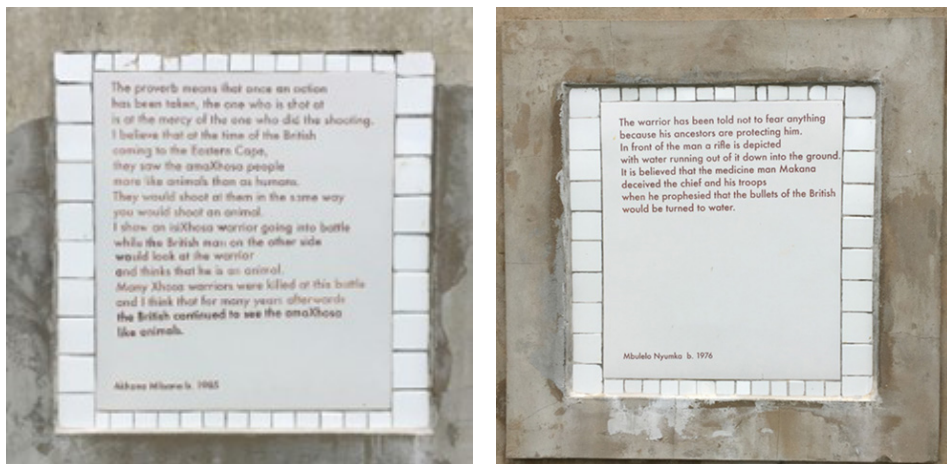 The proverb means that once an action
has been taken, the one who is shot at
is at the mercy of the one who did the shooting.
I believe that at the time of the British
coming to the Eastern Cape,
they saw the amaXhosa people
more like animals than as humans.
They would shoot at them in the same way
you would shoot an animal.
I show an isiXhosa warrior going into battle
while the British man on the other side
would look at the warrior
and thinks that he is an animal.
Many Xhosa warriors were killed at this battle
and I think that for many years afterwards
the British continued to see the amaXhosa
like animals.
b. 1985
The warrior has been told not to fear anything
because his ancestors are protecting him.
In front of the man a rifle is depicted
with water running out of it down into the ground.
It is believed that the medicine man Makana
deceived the chief and his troops
when he prophesied that the bullets of the British
would be turned to water.
Mbulelo Nyumka b. 1976